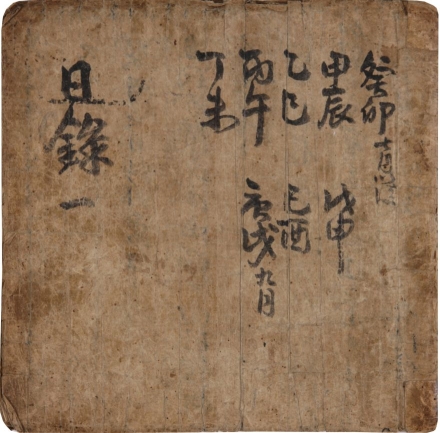 癸卯
甲辰 戊申
乙巳 己酉
丙午 庚戌九月
丁未
日錄 一